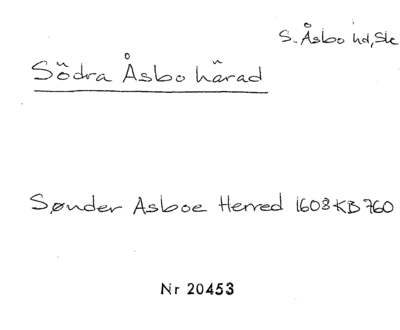 S. Åsbo hd, Sk
Södra Åsbo härad
Sønder Asboe Herred 1608 KB 760
Nr 20453